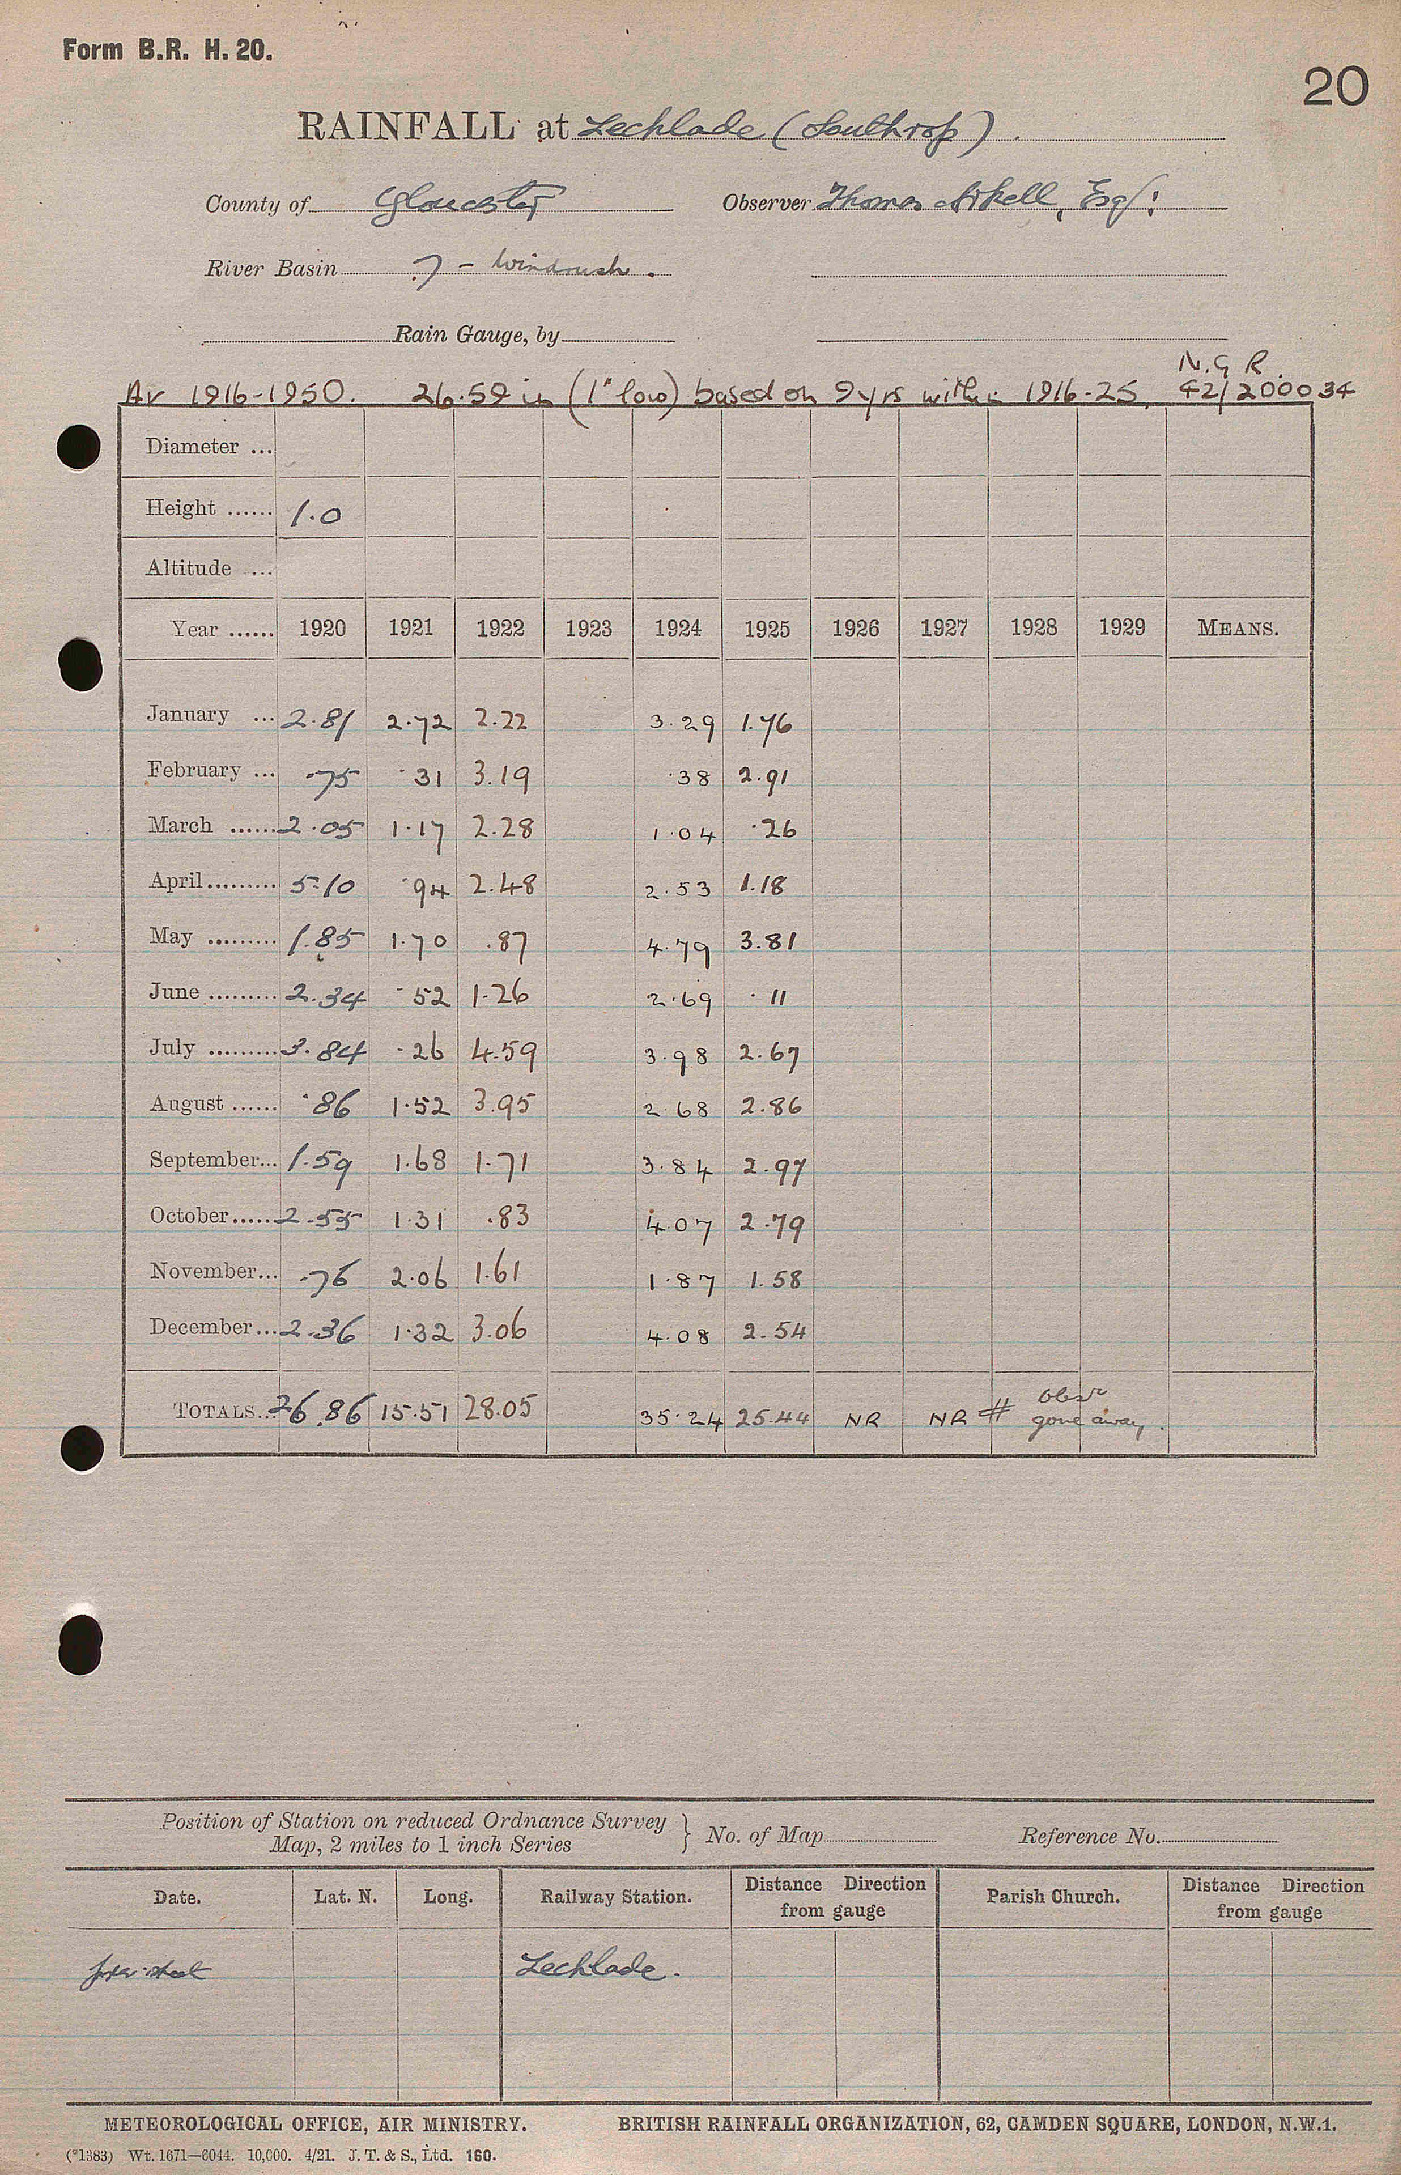 Form B.R. H. 20.
20
RAINFALL at Lechlade (Southrop)
County of Gloucester Observer Thomas Arkell, Esq:
River Basin 7 - Windrush.
Rain Gauge, by
N.G.R.
Av 1916-1950. 26.59 in (1" low) based on 9 yrs within 1916-25. 42/200034
Diameter ...
Height ...... 1.0
Altitude ...
Year ...... 1920 1921 1922 1923 1924 1925 1926 1927 1928 1929 MEANS.
January ... 2.81 2.72 2.22 3.29 1.76
February ... .75 .31 3.19 .38 2.91
March ...... 2.05 1.17 2.28 1.04 .26
April ......... 5.10 .94 2.48 2.53 1.18
May ......... 1.85 1.70 .87 4.79 3.81
June ......... 2.34 .52 1.26 2.69 .11
July ......... 3.84 .26 4.59 3.98 2.67
August ...... .86 1.52 3.95 2.68 2.86
September... 1.59 1.68 1.71 3.84 2.97
October ...... 2.55 1.31 .83 4.07 2.79
November... .76 2.06 1.61 1.87 1.58
December... 2.36 1.32 3.06 4.08 2.54
TOTALS... 26.86 15.51 28.05 35.24 25.44 NR NR # obsr
gone away.
Position of Station on reduced Ordnance Survey
Map, 2 miles to 1 inch Series } No. of Map Reference No.
Date. Lat. N. Long. Railway Station. Distance Direction from gauge Parish Church. Distance Direction from gauge
Lechlade.
METEOROLOGICAL OFFICE, AIR MINISTRY. BRITISH RAINFALL ORGANIZATION, 62, CAMDEN SQUARE, LONDON, N.W.1.
(*1383) Wt. 1671—6044. 10,000. 4/21. J. T. & S., Ltd. 160.